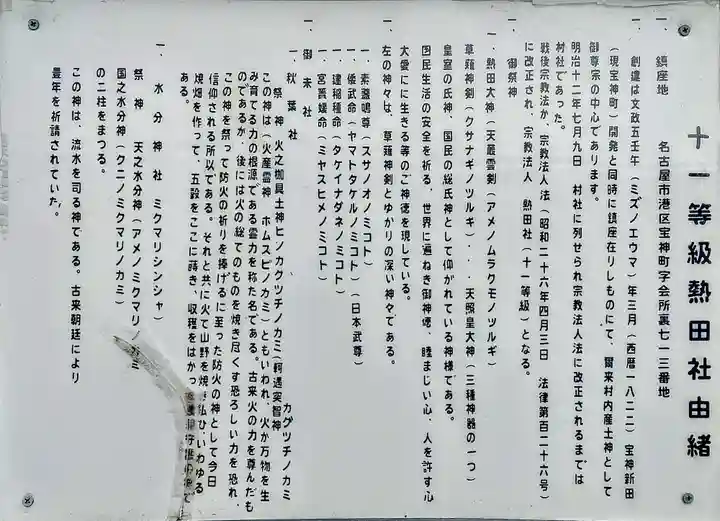 十一等級熱田社由緒
一、鎮座地　　名古屋市港区宝神町字会所裏七一三番地
一、創建は文政五壬午（ミズノエウマ）年三月（西暦一八二二）宝神新田
（現宝神町）開発と同時に鎮座在りしものにて、爾来村内産土神として
御尊宗の中心であります。
明治十二年七月九日　村社に列せられ宗教法人法に改正されるまでは
村社であった。
戦後宗教法が、宗教法人法（昭和二十六年四月三日　法律第百二十六号）
に改正され、宗教法人　熱田社（十一等級）となる。
一、御祭神
一．熱田大神（天叢雲剣（アメノムラクモノツルギ）
草薙神剣（クサナギノツルギ）・・天照皇大神（三種神器の一つ）
皇室の氏神、国民の総氏神として仰がれている神様である。
国民生活の安全を祈る、世界に遍ねき御神徳、睦まじい心、人を許す心
大愛にに生きる等のご神徳を現している。
左の神々は、草薙神剣とゆかりの深い神々である。
一．素盞嗚尊（スサノオノミコト）
一．倭武命（ヤマトタケルノミコト）（日本武尊）
一．建稲種命（タケイナダネノミコト）
一．宮簀媛命（ミヤスヒメノミコト）
一．御末社
一　秋葉社
祭　神　火之枷具土神ヒノカグツチノカミ（軻遇突智神　カグツチノカミ
この神は（火産霊神　ホムスビノカミ）ともいわれ、火が万物を生
み育てる力の根源である霊力を称た名である。古来火の力を尊んだも
のであるが、後には火の総てのものを焼き尽くす恐ろしい力を恐れ、
この神を祭って防火の祈りを捧げるに至った防火の神として今日
信仰される所以である。それと共に火て山野を焼き払ひ、いわゆる
焼畑を作って、五穀をここに蒔き、収穫をはかっ
ある。
一．水　分　神　社　ミクマリシンシャ）
祭　神　天之水分神（アメノミクマリノカミ
国之水分神（クニノミクマリノカミ）
の二柱をまつる。
この神は、流水を司る神である。古来朝廷により
豊年を祈請されていた。